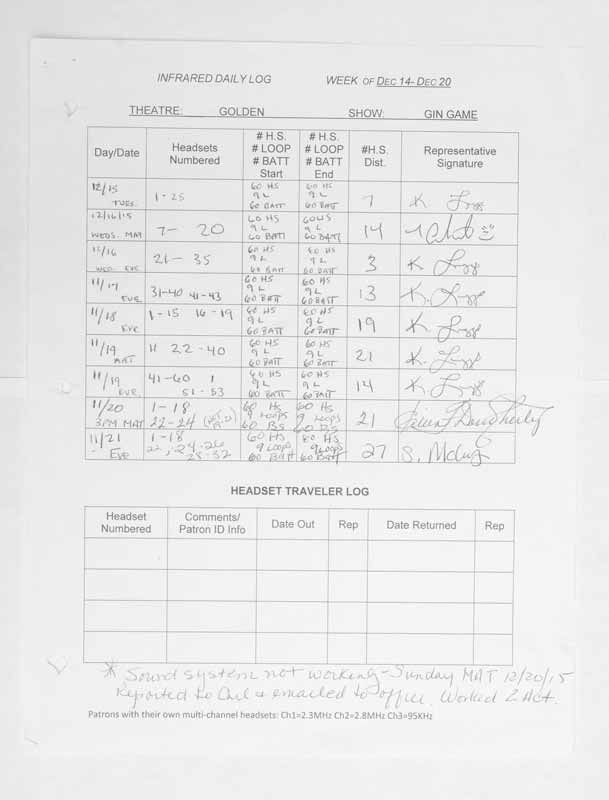 INFRARED DAILY LOG WEEK OF DEC 14- DEC 20
THEATRE: GOLDEN SHOW: GIN GAME
Day/Date Headsets Numbered # H.S. # LOOP # BATT Start # H.S. # LOOP # BATT End #H.S. Dist. Representative Signature
12/15 TUES. 1-25 60 HS 9 L 60 BATT 60 HS 9 L 60 BATT 7 K.
12/16/15 WEDS. MAT 7- 20 60 HS 9 L 60 BATT 60 HS 9 L 60 BATT 14
12/16 WED. EVE. 21- 35 60 HS 9 L 60 BATT 60 HS 9 L 60 BATT 3 K.
11/17 EVE. 31-40 41-43 60 HS 9 L 60 BATT 60 HS 9 L 60 BATT 13 K.
11/18 EVE. 1-15 16-19 60 HS 9 L 60 BATT 60 HS 9 L 60 BATT 19 K.
11/19 MAT 22-40 60 HS 9 L 60 BATT 60 HS 9 L 60 BATT 21 K.
11/19 EVE. 41-60 1 51-53 60 HS 9 L 60 BATT 60 HS 9 L 60 BATT 14 K.
11/20 3PM MAT 1-18 22-24 60 HS 9 LOOPS 60 BS 60 HS 9 LOOPS 60 BS 21
11/21 Eve 1-18 22, 24-26 28-32 60 HS 9 LOOPS 60 BATT 60 HS 9 LOOPS 60 BATT 27 S.
HEADSET TRAVELER LOG
Headset Numbered Comments/ Patron ID Info Date Out Rep Date Returned Rep
* Sound system not working - Sunday MAT 12/20/15
Reported to & emailed to office. Worked 2 Act.
Patrons with their own multi-channel headsets: Ch1=2.3MHz Ch2=2.8MHz Ch3=95KHz